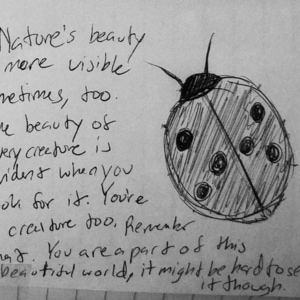 Nature's beauty
more visible
metimes, too.
e beauty of
very creature is
vident when you
ook for it. You're
creature too. Remember
hat. You are a part of this
beautiful world, it might be hard to se
it though.